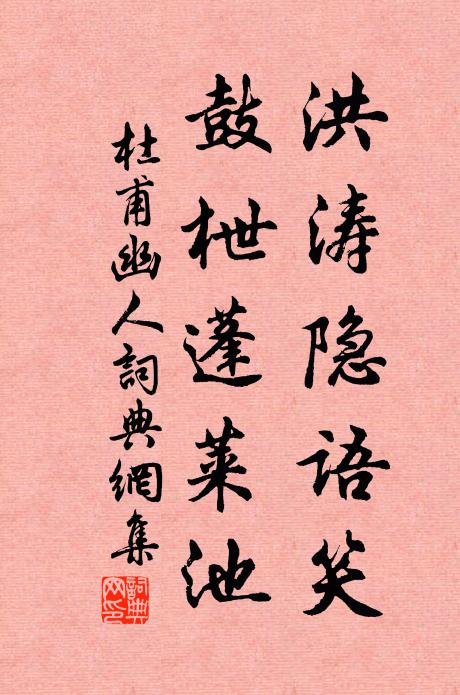 洪涛隐语笑
鼓枻蓬莱池
杜甫幽人詞典網集
詞典網印